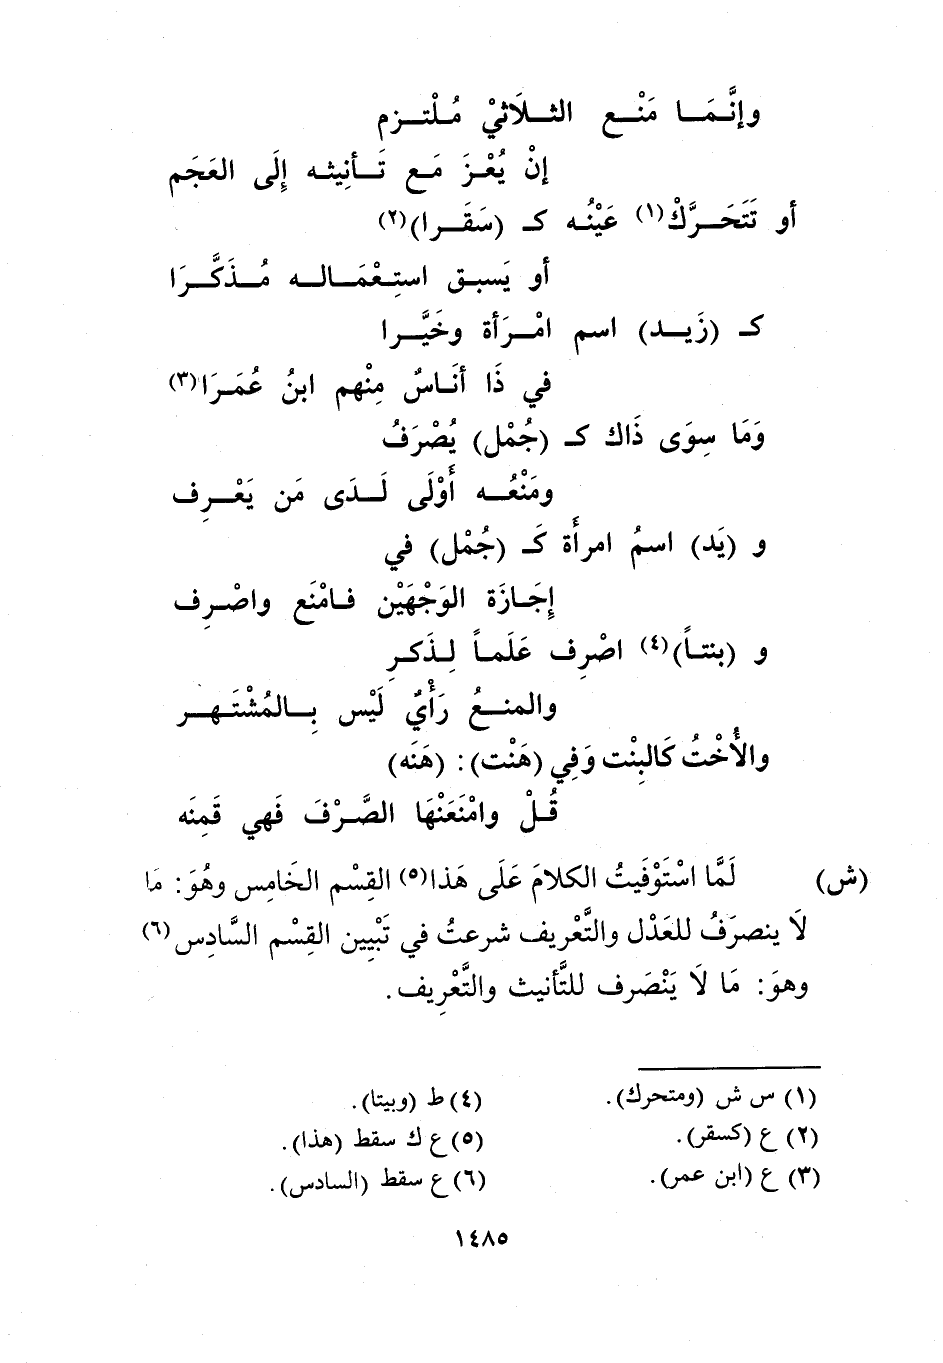 وإنَّمَا مَنْع الثلَاثيْ مُلْتزم
إنْ يُعْزَ مَع تَأنِيثه إِلَى العَجَم
أو تَتَحَرَّكْ(١) عَيْنُه كـ (سَقَرا)(٢)
أو يَسبق استِعْمَاله مُذَكَّرَا
كـ (زَيد) اسم امْرَأة وخَيَّرا
في ذَا أنَاسٌ مِنْهم ابنُ عُمَرَا(٣)
وَمَا سِوَى ذَاك كـ (جُمْل) يُصْرَفُ
ومَنْعُه أَوْلَى لَدَى مَن يَعْرِف
و (يَد) اسمُ امرأَة كَـ (جُمْل) في
إجَازَة الوَجْهَيْن فامْنَع واصْرِف
و (بنتاً)(٤) اصْرِف عَلَماً لِذَكرِ
والمنعُ رَأْيٌ لَيْس بِالمُشْتَهر
والأُخْتُ كَالبِنْت وَفِي (هَنْت): (هَنَه)
قُلْ وامْنَعَنْهَا الصَّرْفَ فَهي قَمِنَه
(ش) لَمَّا اسْتَوْفَيتُ الكلامَ عَلَى هَذا(٥) القِسْم الخَامِس وهُوَ: مَا
لَا ينصرَفُ للعَدْل والتَّعْرِيف شرعتُ في تَبْيِين القِسْم السَّادِس(٦)
وهوَ: مَا لَا يَنْصَرف للتَّأنيث والتَّعْرِيف.
(١) س ش (ومتحرك).
(٢) ع (كسقر).
(٣) ع (ابن عمر).
(٤) ط (وبيتا).
(٥) ع ك سقط (هذا).
(٦) ع سقط (السادس).
١٤٨٥